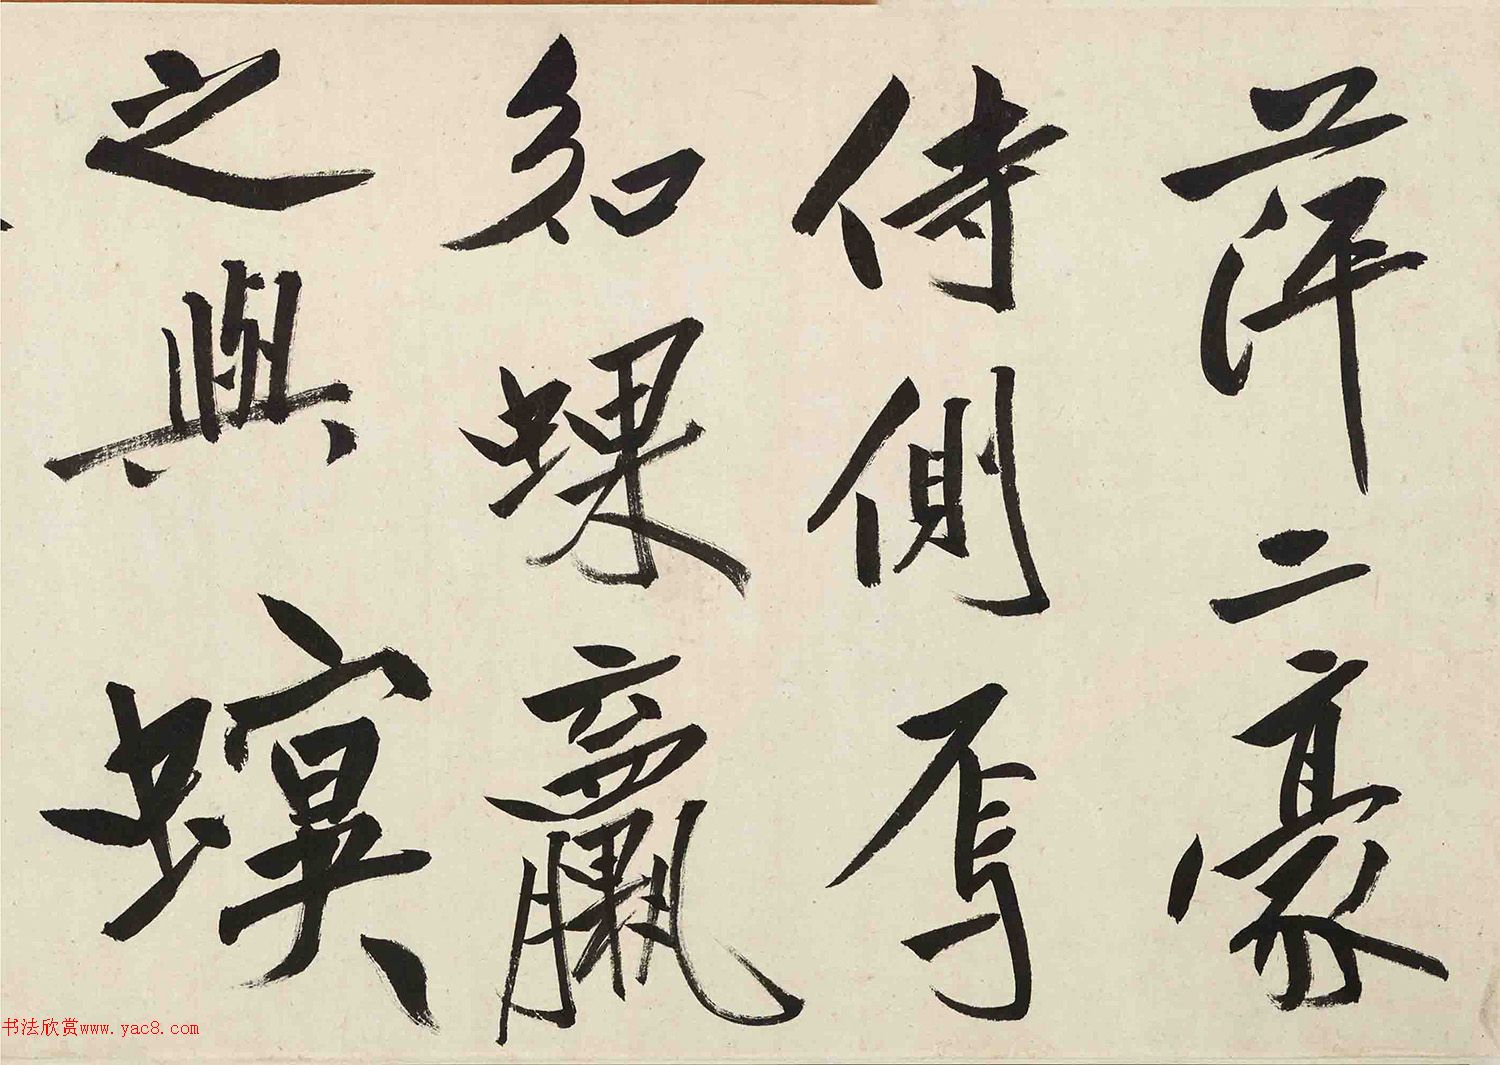 萍二豪
侍側焉
如蜾蠃
之與螟
书法欣赏www.yac8.com